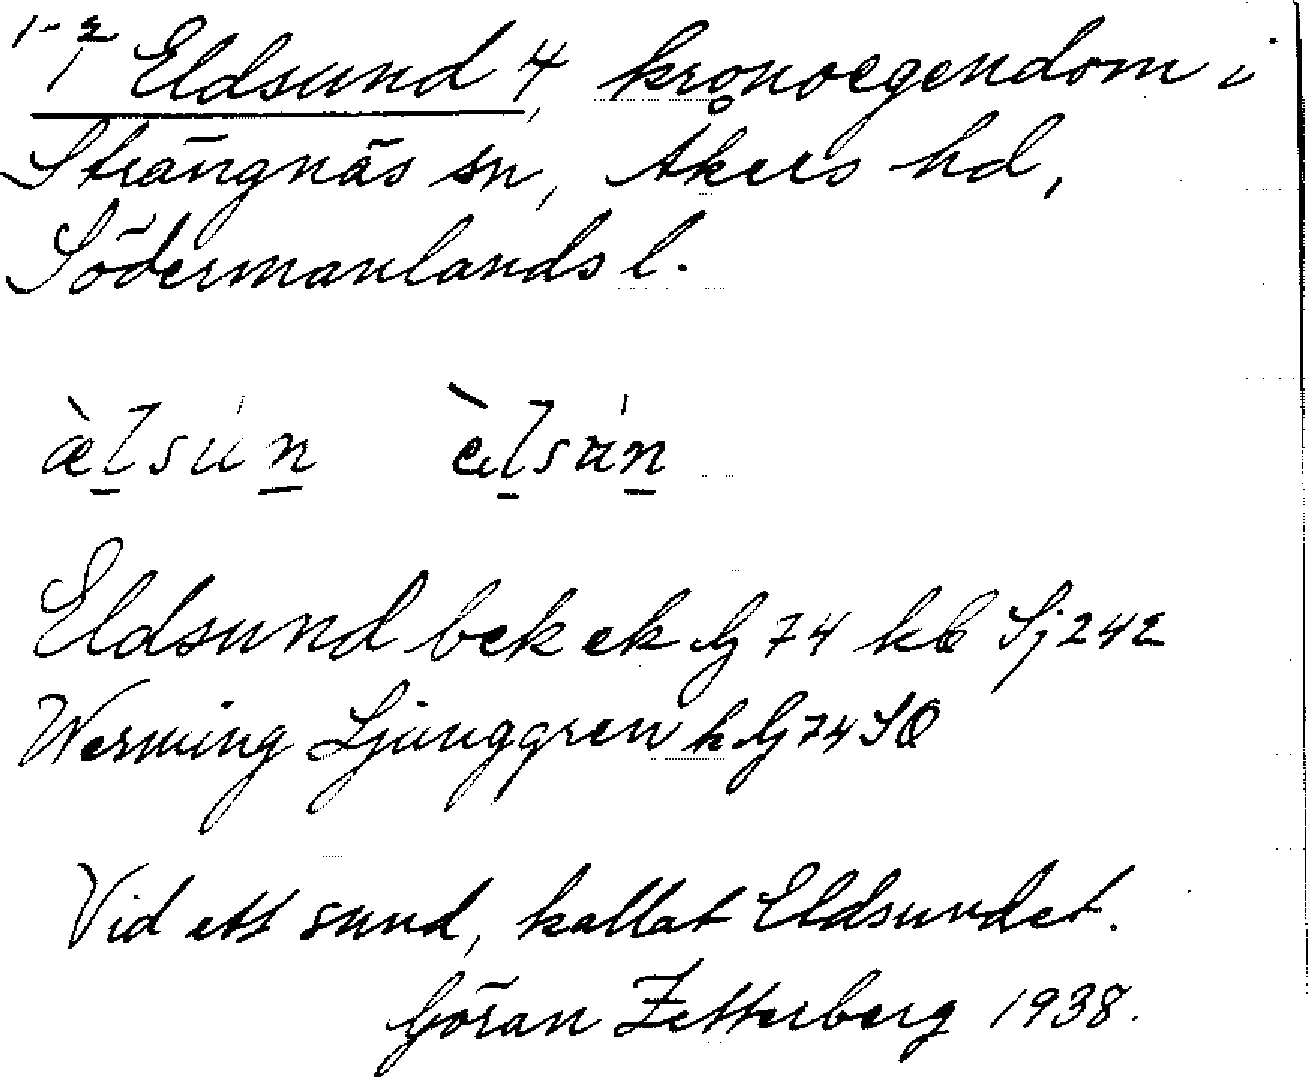 1-2
1 Eldsund 4, kronoegendom i
Strängnäs sn, Åkers hd,
Södermanlands l.
æ̀l̠sún̠ èl̠sún̠
Eldsund bek ek G 74 kb Sj 242
Werming Ljunggren k G 74 SO
Vid ett sund, kallat Eldsundet.
Göran Zetterberg 1938.